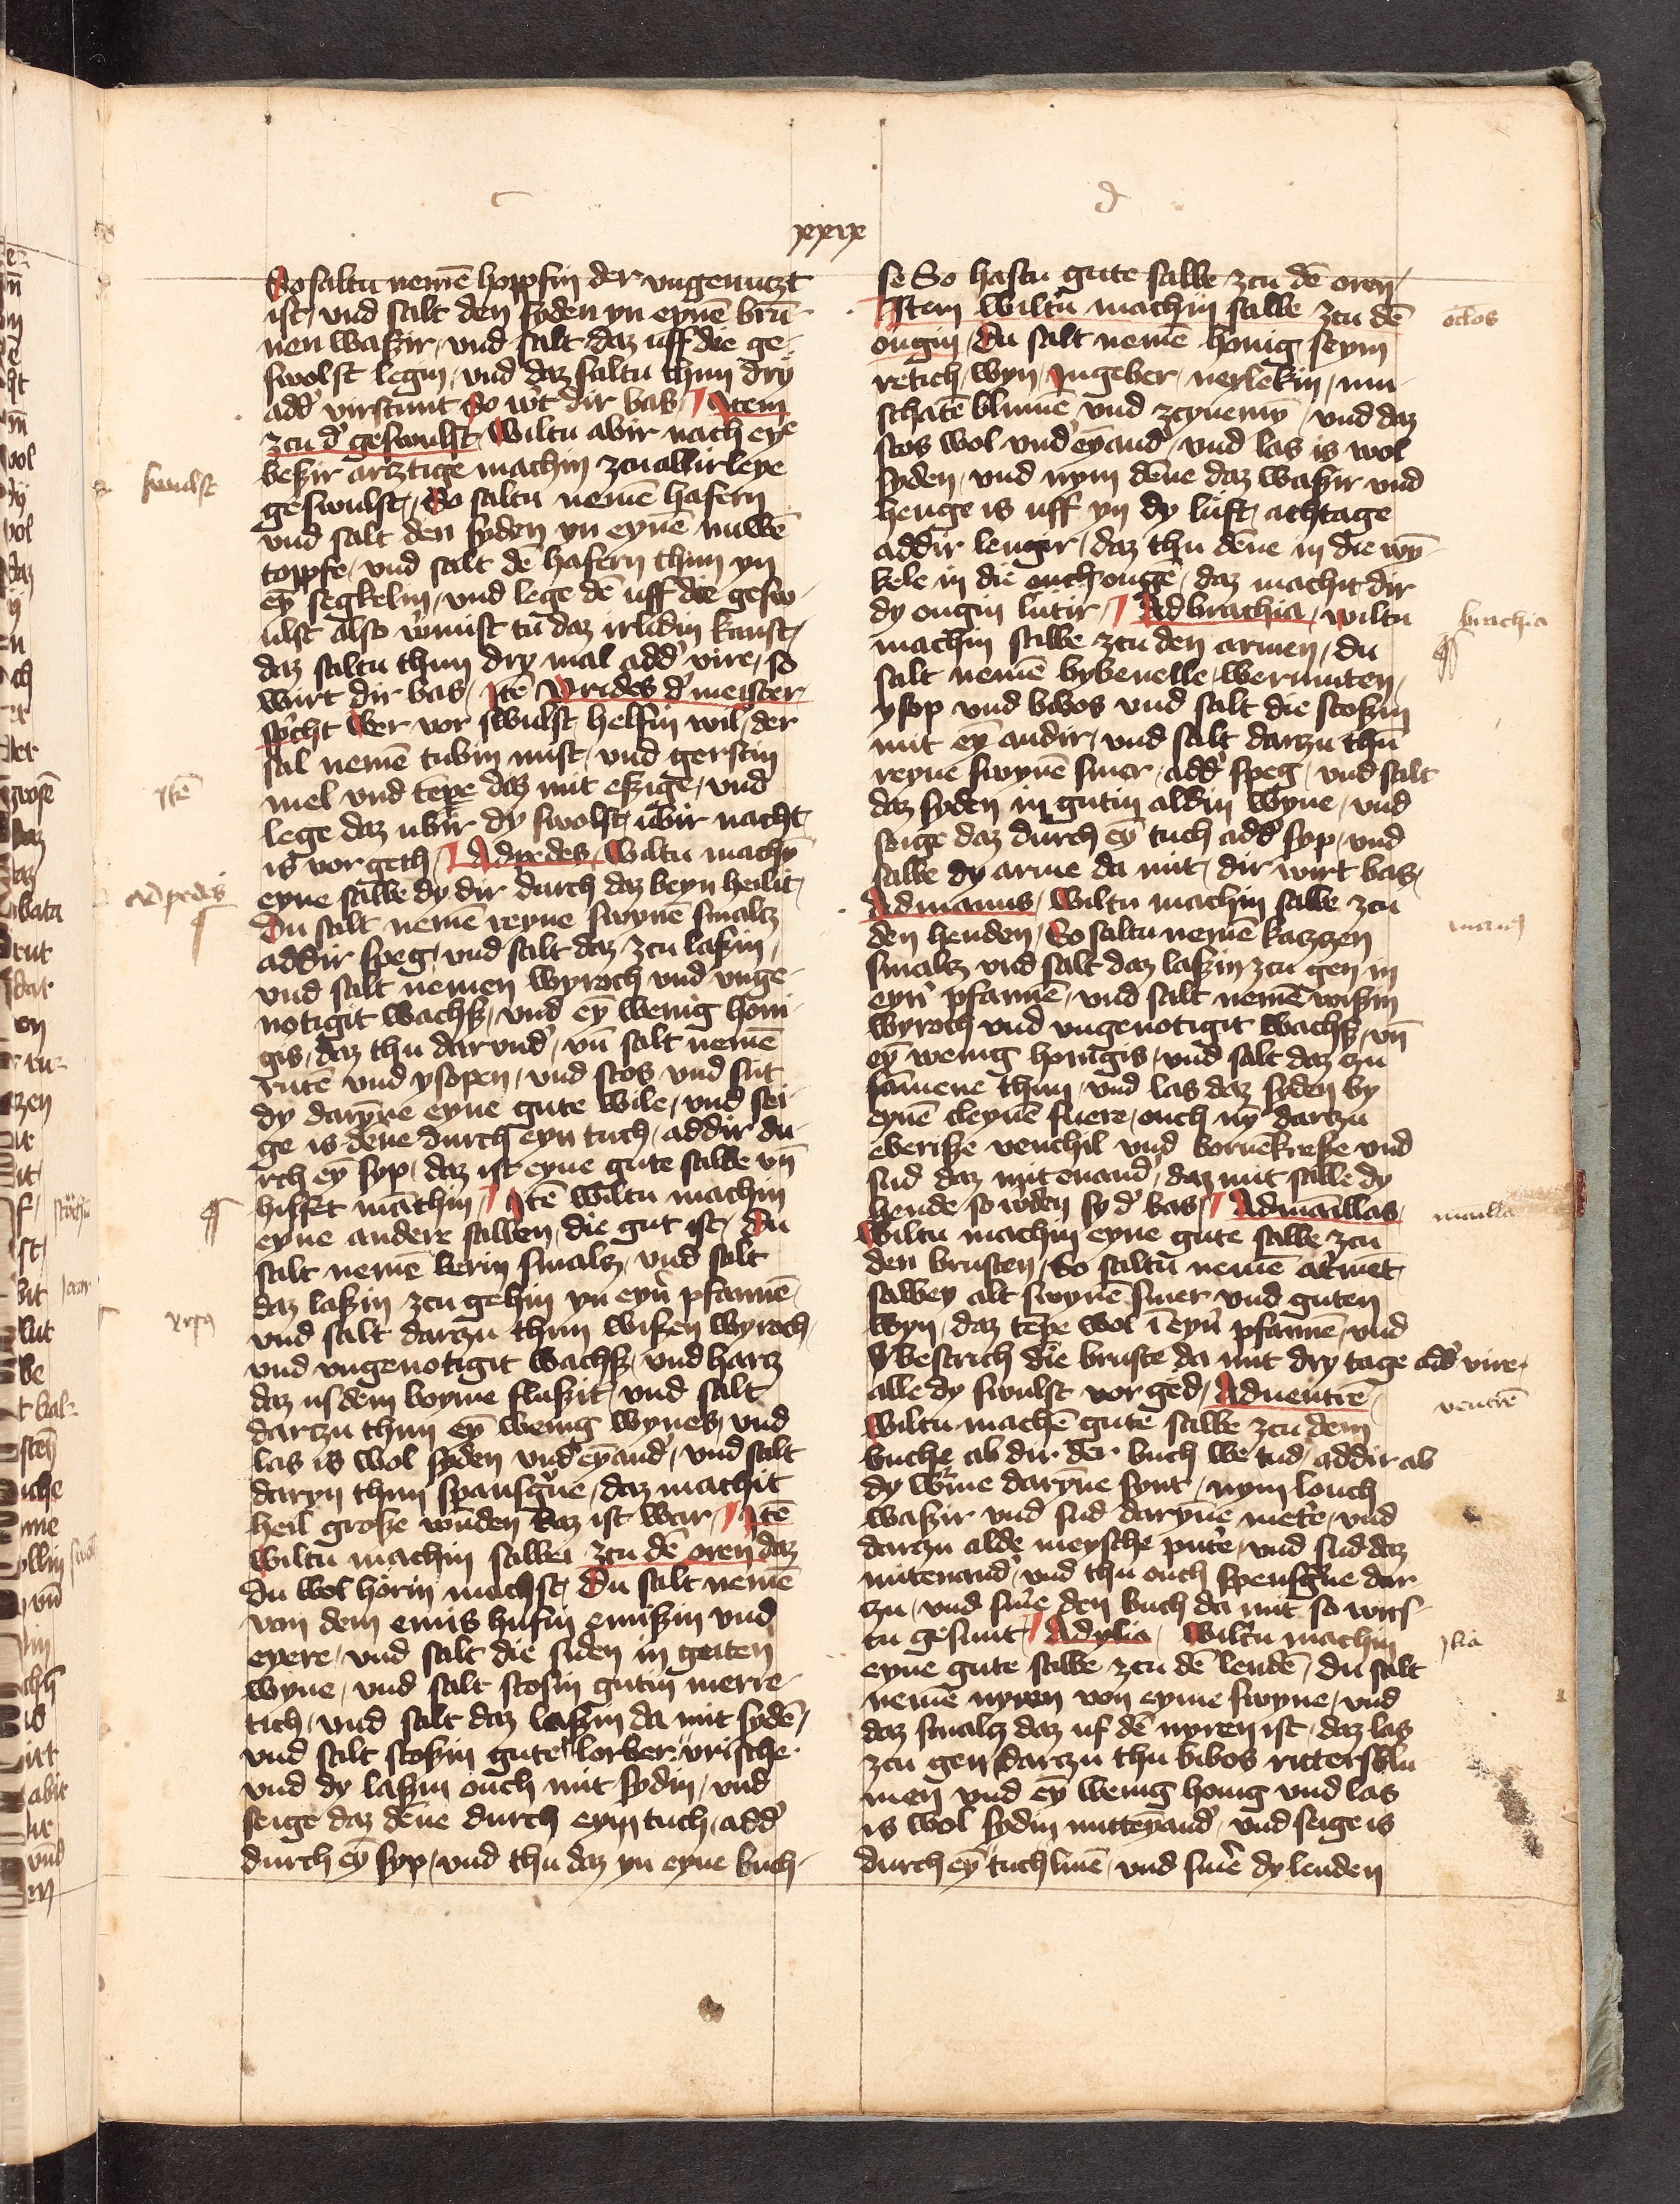 c
d
xxxix
So saltu nemē hoppfin der vngenutzt
ist / vnd salt den syden yn eynē brū-
nen waßir / vnd salt daz uff die ge-
swolst legin / vnd daz saltu thun dry
add' virstunt So w't dir bas / Item
zcu d' geswulst / Wiltu abir nach eyē
beßir arztige machin zcu allirleye
geswulst / So saltu nemē hafern
vnd salt den syden yn eynē nuwē
toppfe / vnd salt dē hafern thun yn
eȳ segkelin / vnd lege dē uff die gesw-
ulst also v'mist tu daz irlidin kanst /
daz saltu thun dry mal add' vire / so
wirt dir bas / Itē Yrides d' meister
sp'cht Wer vor swulst helfin wil / der
sal nemē tubin mist / vnd gerstin
mel vnd tēpe daz mit eßige / vnd
lege daz ubir dy swolst ubir nacht
is vor geth / Ad pedes / Wiltu machȳ
eyne salbe dy dir durch daz beyn heilit /
Du salt nemē reyne swynē smalcz
addir speg / vnd salt daz zcu laßin /
vnd salt nemen wyroch vnd vnge-
notigit wachß / vnd eȳ wenig honi-
gis / daz thu dar vnd' / vn̄ salt nemē
rutē vnd ysopen / vnd stos vnd sut
dy darȳne eyne gute wile / vnd sei-
ge is dēne durch eyn tuch / addir du-
rch eȳ syp / daz ist eyne gute salbe vn̄
hilfet māchin / Itē Wiltu machin
eyne andere salben / die gut ist / Du
salt nemē berin smalcz / vnd salt
daz laßin zcu gehin yn eyn' pfannē /
vnd salt darzu thun wißen wyroch /
vnd vngenotigit wachß / vnd harcz
daz us dem boyme flußit / vnd salt
darczu thun eȳ wenig wynes / vnd
las is wol syden vnd' eȳand' / vnd salt
daryn thun spansg'ne / daz machit
heil große wūden Daz ist war / Itē
Wiltu machin salben zcu dē oren daz
du wol hörin mochst / Du salt nemē
von dem emis hufin emißin vnd
eyere / vnd salt die siden in guten
wyne / vnd salt stosin gutin merre-
tich / vnd salt daz laßin da mit sydē /
vnd salt stoßin gute lorber vrische
vnd dy laßin ouch mit sydin / vnd
seige daz dēne durch eyn tuch / add'
durch eȳ syp / vnd thu daz yn eyne buch-
swulst
Itē
Ad pedes
se So hastu gute salbe zcu dē oren /
Item Wiltu machin salbe zcu dē
ougin / Du salt nemē honig seym
retich / wyn / Ingeber / neylekin / mu-
schatē blumē vnd / vnd daz
stos wol vnd' eȳand' / vnd las is wol
syden / vnd nym dēne daz waßir vnd
henge is uff yn dy luft / achtage
addir lenger / daz thu dēne in die wȳ-
kele in die ougē / daz machit dir
dy ougin lutir / Ad brachia / wiltu
machin salbe zcu den armen / du
salt nemē bybenelle / wermuten /
ysop vnd bibos vnd salt die stoßin
mit eȳ andir / vnd salt darzu thū
reyne swynē smer / add' speg / vnd salt
daz syden in gutin aldin wyne / vnd
seige daz durch eȳ tuch add' syp / vnd
salbe dy arme da mit / dir wirt bas /
Ad manus / Wiltu machin salbe zcu
den henden / So saltu nemē kazzen
smalcz vnd salt daz laßin zcu gen in
eyn' pfannē / vnd salt nemē wißin
wyroch vnd vngenotigit wachß / vn̄
eȳ wenig honigis / vnd salt daz zu
samene thun / vnd las daz syden by
eynē cleynē fuere / ouch nȳ darzu
eberiße venchil vnd bornekreße vnd
sud daz mit enand' / daz mit salbe dy
hende so w'den sy d' bas / Ad māillas
Wiltu machin eyne gute salbe zcu
den brusten / So saltu nemē
salbey alt swynē smer vnd guten
wyn / daz tēpe wol ī eyn' pfannē / vnd
bestrich die bruste da mit dry tage add' vire /
alle dy swulst vor ged / Ad ventrē
Wiltu machē gute salbe zcu dem
buche ab dir der buch we tud / addir ab
dy w'me darȳne synt / nym louch
waßir vnd sud darȳne / vnd
darzu alde meysche / vnd sud daz
mit enand' / vnd thu ouch spensg'ne dar
zu / vnd sm'e den buch da mit so wirs-
tu gesunt / Ad ylia / Wiltu machin
eyne gute salbe zcu dē lendē / du salt
nemē nyren von eyme swyne / vnd
daz smalcz daz uf dē nyren ist / daz las
zcu gen / darzu thu bibos rittersblu
men vnd eȳ wenig honig vnd las
is wol sydin mitteȳand' / vnd seige is
durch eȳ tuch linē / vnd sm'e dy lenden
oclos
brachia
manus
mailla
ventrē
ylia